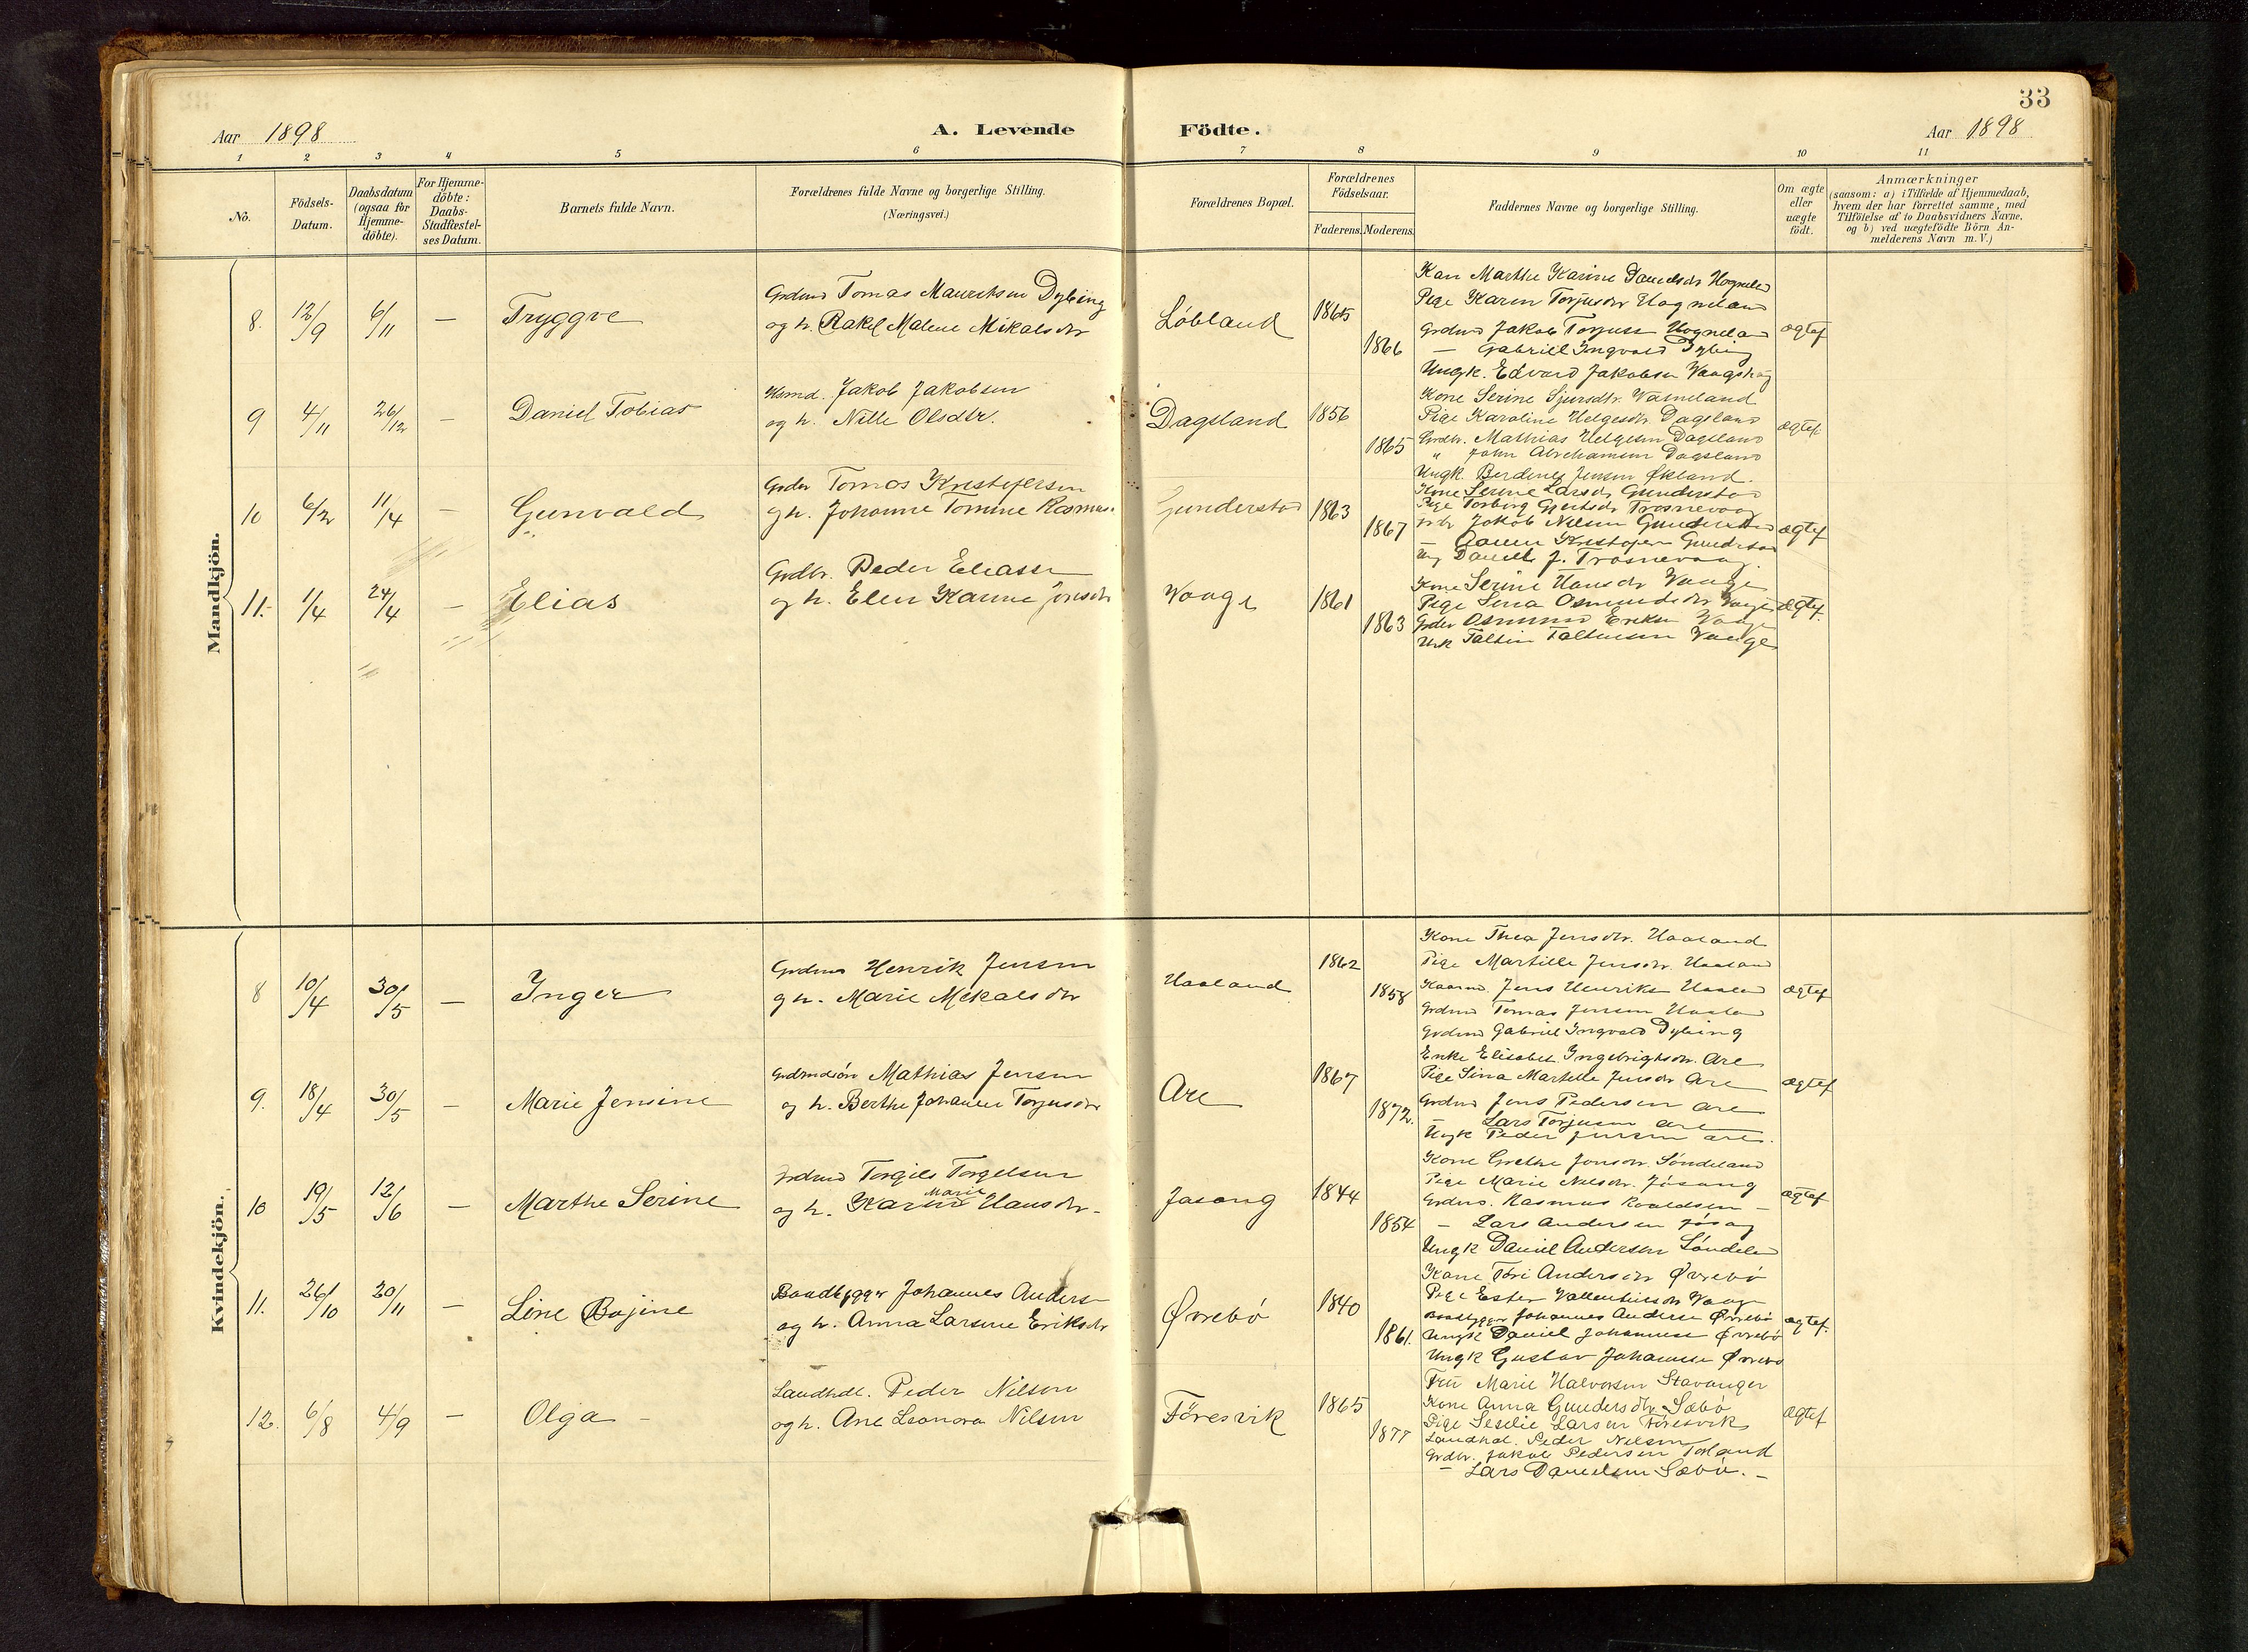 33
Aar 1898
A. Levende
Födte.
Aar 1898
1 2 3 4 5 6 7 8 9 10 11
No.
Födsels-
Datum.
Daabsdatum
(ogsaa for
Hjemme-
döbte).
For Hjemme-
döbte:
Daabs-
Stadfæstel-
ses Datum.
Barnets fulde Navn.
Forældrenes fulde Navne og borgerlige Stilling.
(Næringsvei.)
Forældrenes Bopæl.
Forældrenes
Födselsaar.
Faderens. Moderens.
Faddernes Navne og borgerlige Stilling.
Om ægte
eller
uægte
födt.
Anmærkninger
(saasom: a) i Tilfælde af Hjemmedaab,
hvem der har forrettet samme, med
Tilföielse af to Daabsvidners Navne.
og b) ved uægtefödte Börn An-
melderens Navn m. V.)
Mandkjön.
8. 12/9 6/11 — Tryggve
Tomas Dybing
og h. Rakel Malene Mikalsdtr
Löbland 1865
1866
Marthe Karine
Pige Karen Torjusdtr
Jakob Torjuss
— Gabriel Ingvald Dybing
Ungk. Edvard Jakobsen
ægtef
9 4/11 26/12 — Daniel Tobias
Jakob Jakobsen
og h. Nille Olsdtr.
Dagsland 1856
1865
Kone Serine Sjursdtr.
Pige Karoline Helgesdtr. Dagsland
Grdbr. Mathias Helgesen Dagsland
" John Abrahamsen Dagsland
Ungk. Jensen Økland.
ægtef
10 6/2 11/4 — Gunvald
Tomas Kristofersen
og h. Johanne Tomine Rasmus.
Gunderstad 1863
1867
Kone Serine Larsdtr Gunderstad
Pige Torborg
Jakob Nilsen Gunderstad
Kristofer
Daniel J.
ægtef
11. 1/4 24/4 — Elias
Grdbr. Peder Eliass
og h. Elen Karine Jonsdtr
Vaage 1861
1863
Kone Serine Hansdtr Vaage
Pige Lina Osmundsdtr Vaage
Osmund Eriksen Vaage
Vaage
ægtef.
Kvindekjön.
8 10/4 30/5 — Inger
Grdmd Henrik Jensen
og h. Marie Mikalsdtr
Haaland 1862
1858
Kone Thea Jensdtr. Haaland
Pige Martille Jensdtr. Haaland
Jens Henriksen
Grdmd Tomas Jensen
Grdmd Gabriel Ingvald Dybing
ægtef
9. 18/4 30/5 — Marie Jensine
Mathias Jensen
og h. Berthe Johanne Torjusdtr
Are 1867
1872.
Enke Elisabet Ingebrigtsdtr. Are
Pige Sina Martille Jensdtr Are
Grdmd Jens Pedersen Are
— Lars Torjusen Are
Ungk Peder Jensen Are.
ægtef
10 19/5 12/6 — Marthe Serine
Grdmd Torgils Torgelsen
Marie
og h. Karen Hansdtr -
Jøsang 1844
1854
Kone Grethe Jonsdtr. Söndeland
Pige Marie Nilsdtr. Jösang
Rasmus —
— Lars Andersen
Ungk Daniel Andersen
ægtef
11. 26/10 20/11 — Line Bojine
Baadbygger Johannes Anders
og h. Anna Larsine Eriksdtr
Øvrebö 1840
1861.
Kone Andersdtr Øvrebö
Pige Ester
Baadbygger Johannes Anderse Øvrebö
Ungk Daniel Johannesse Øvrebö
Ungk Gustav Johannesse Øvrebö
ægtef.
12. 6/8 4/9 — Olga —
Landhdl. Peder Nilson
og h. Ane Leonora Nilsen
Föresvik 1865
1877
Fru Marie Halvorsen Stavanger
Kone Anna Gundersdtr Sæbö
Pige Larsen Föresvik
Landhdl. Peder Nilsen
Grdbr. Jakob Pedersen
— Lars Danielsen Sæbö. —
ægtef